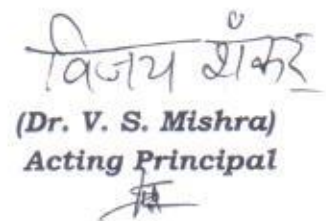 विजय शंकर
(Dr. V. S. Mishra)
Acting Principal